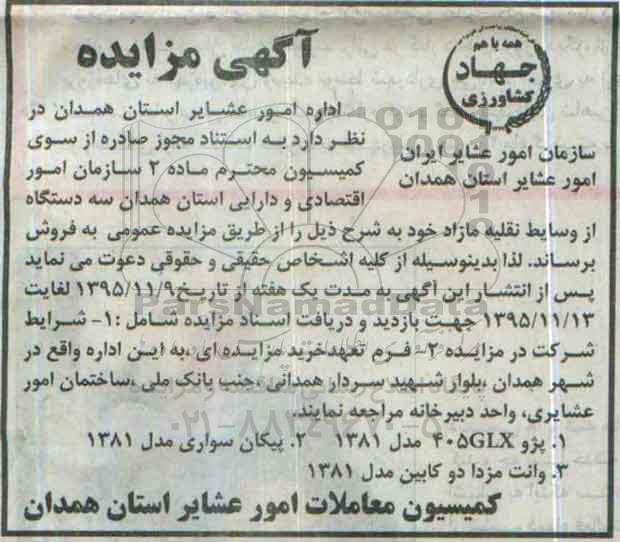 همه با هم
جهاد
کشاورزی
سازمان امور عشایر ایران
امور عشایر استان همدان
آگهی مزایده
اداره امور عشایر استان همدان در
نظر دارد به استناد مجوز صادره از سوی
کمیسیون محترم ماده ۲ سازمان امور
اقتصادی و دارایی استان همدان سه دستگاه
از وسایط نقلیه مازاد خود به شرح ذیل را از طریق مزایده عمومی به فروش
برساند. لذا بدینوسیله از کلیه اشخاص حقیقی و حقوقی دعوت می نماید
پس از انتشار این آگهی به مدت یک هفته از تاریخ ۱۳۹۵/۱۱/۹ لغایت
۱۳۹۵/۱۱/۱۳ جهت بازدید و دریافت اسناد مزایده شامل :۱- شرایط
شرکت در مزایده ۲- فرم تعهدخرید مزایده ای ،به این اداره واقع در
شهر همدان ،بلوار شهید سردار همدانی ،جنب بانک ملی ،ساختمان امور
عشایری، واحد دبیرخانه مراجعه نمایند.
۱. پژو ۴۰۵GLX مدل ۱۳۸۱ ۲. پیکان سواری مدل ۱۳۸۱
۳. وانت مزدا دو کابین مدل ۱۳۸۱
کمیسیون معاملات امور عشایر استان همدان
ParsNamadData